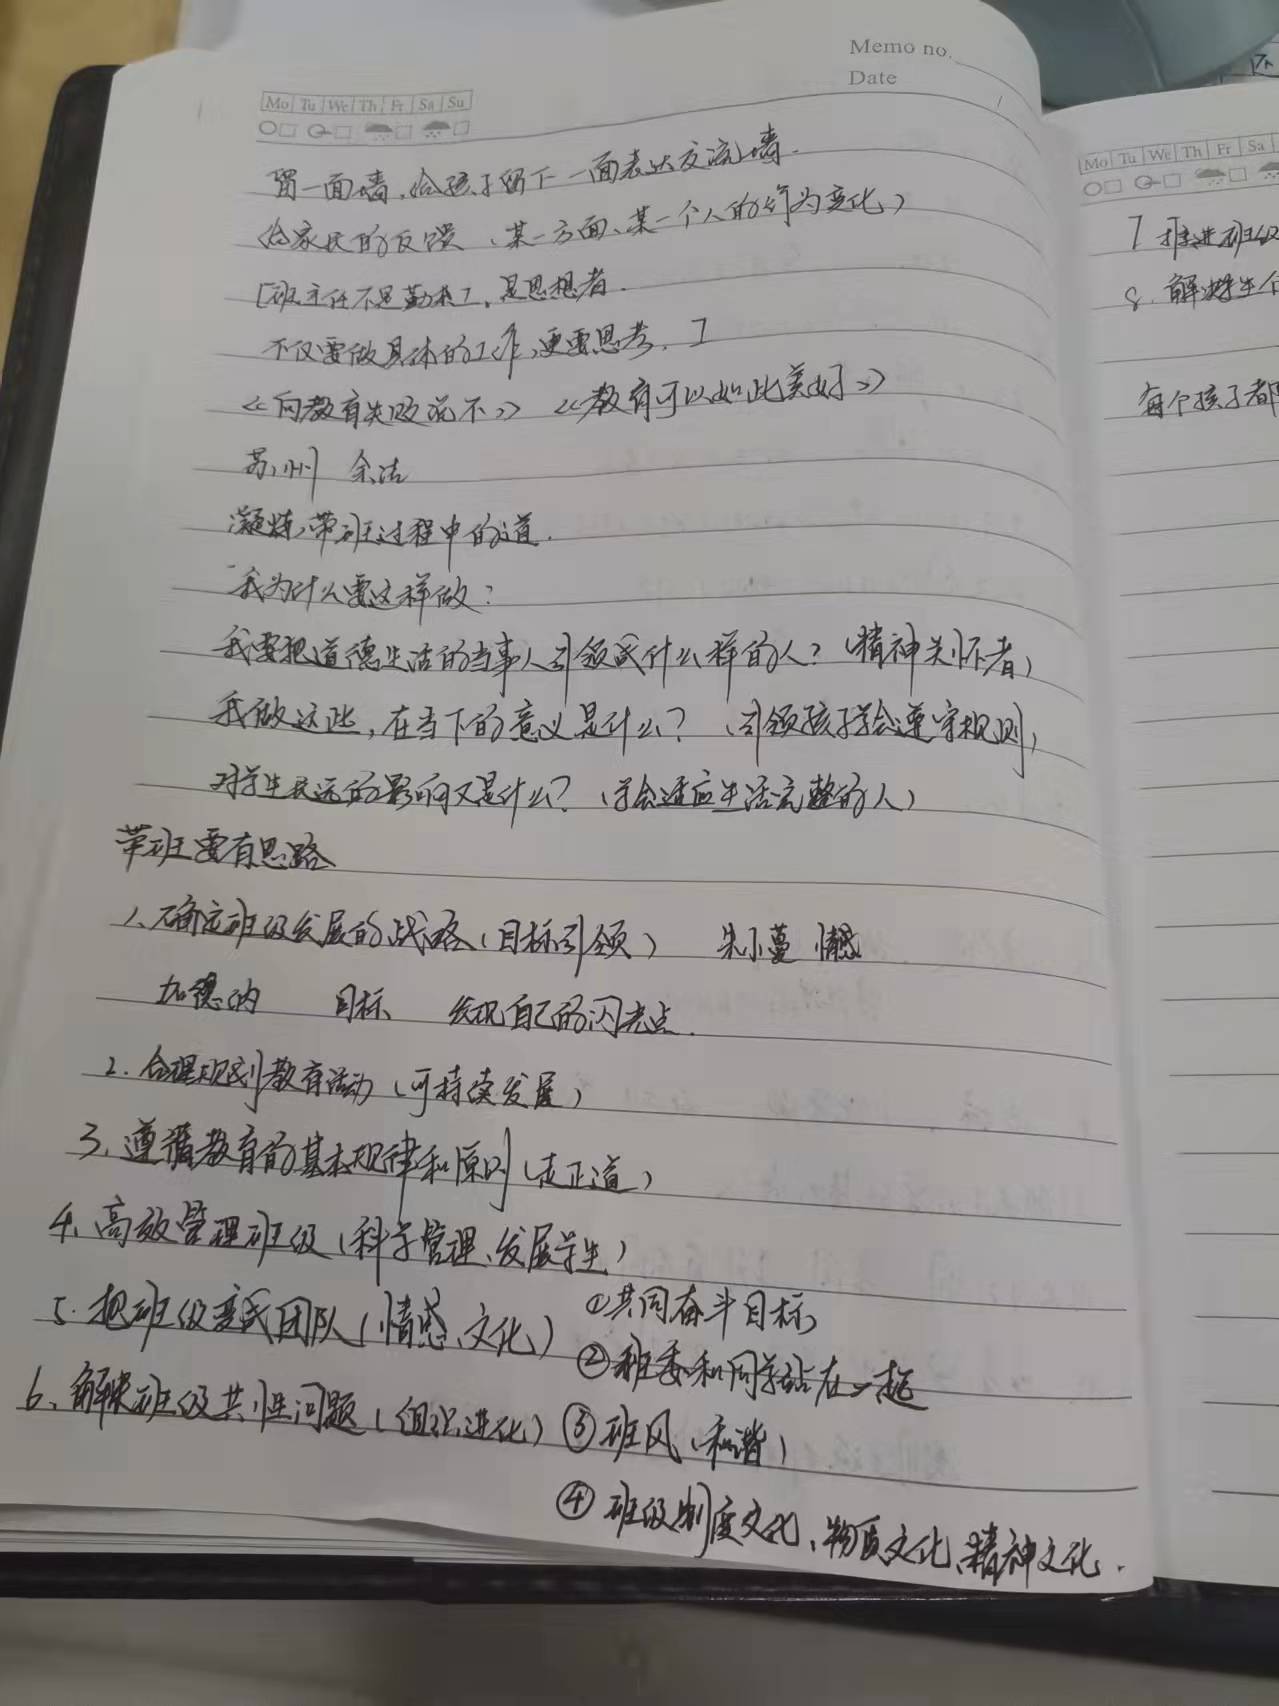 Memo no.
Date
Mo Tu We Th Fr Sa Su
留一面墙,给孩子留下一面表达交流墙.
给家长的反馈(某一方面、某一个人的行为变化)
[班主任不是勤杂工,是思想者.
不仅要做具体的工作,更要思考.]
《向教育失败说不》 《教育可以如此美好》
苏州 余洁
凝炼带班过程中的道.
我为什么要这样做?
我要把道德生活的当事人引领成什么样的人?(精神关怀者)
我做这些,在当下的意义是什么?(引领孩子学会遵守规则)
对学生长远的影响又是什么?(学会适应生活完整的人)
带班要有思路
1、确定班级发展的战略(目标引领) 朱小蔓 情感
加德纳 目标 发现自己的闪光点.
2.合理规划教育活动(可持续发展)
3.遵循教育的基本规律和原则(走正道)
4.高效管理班级(科学管理、发展学生)
5.把班级变成团队(情感、文化) ①共同奋斗目标
②班委和同学站在一起
6、解决班级共性问题(组织进化) ③班风(和谐)
④班级制度文化、物质文化、精神文化.
Mo Tu We Th Fr Sa
7 推进班级
8.解决学生个
每个孩子都